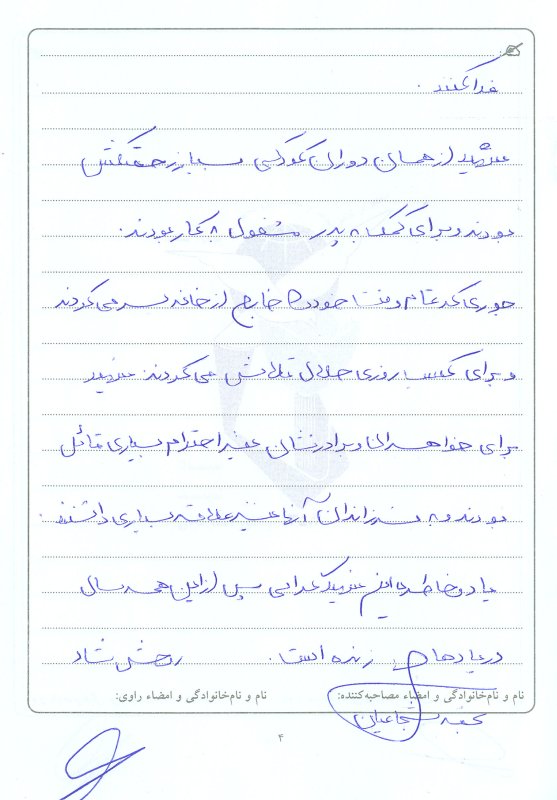 فدا کنند.
شهید از همان دوران کودکی بسیار زحمتکش
بودند و برای کمک به پدر مشغول به کار بودند.
جوری که تمام وقت خود را خارج از خانه بسر می کردند
و برای کسب روزی حلال تلاش می کردند. شهید
برای خواهران و برادرنشان نیز احترام بسیاری قائل
بودند و به فرزندان آنها نیز علاقه بسیاری داشتند.
یاد و خاطره شهید گرامی پس از این همه سال
در یادها زنده است. روحش شاد
نام و نام‌خانوادگی و امضاء مصاحبه‌کننده:
نام و نام‌خانوادگی و امضاء راوی:
شجاعیان
۴